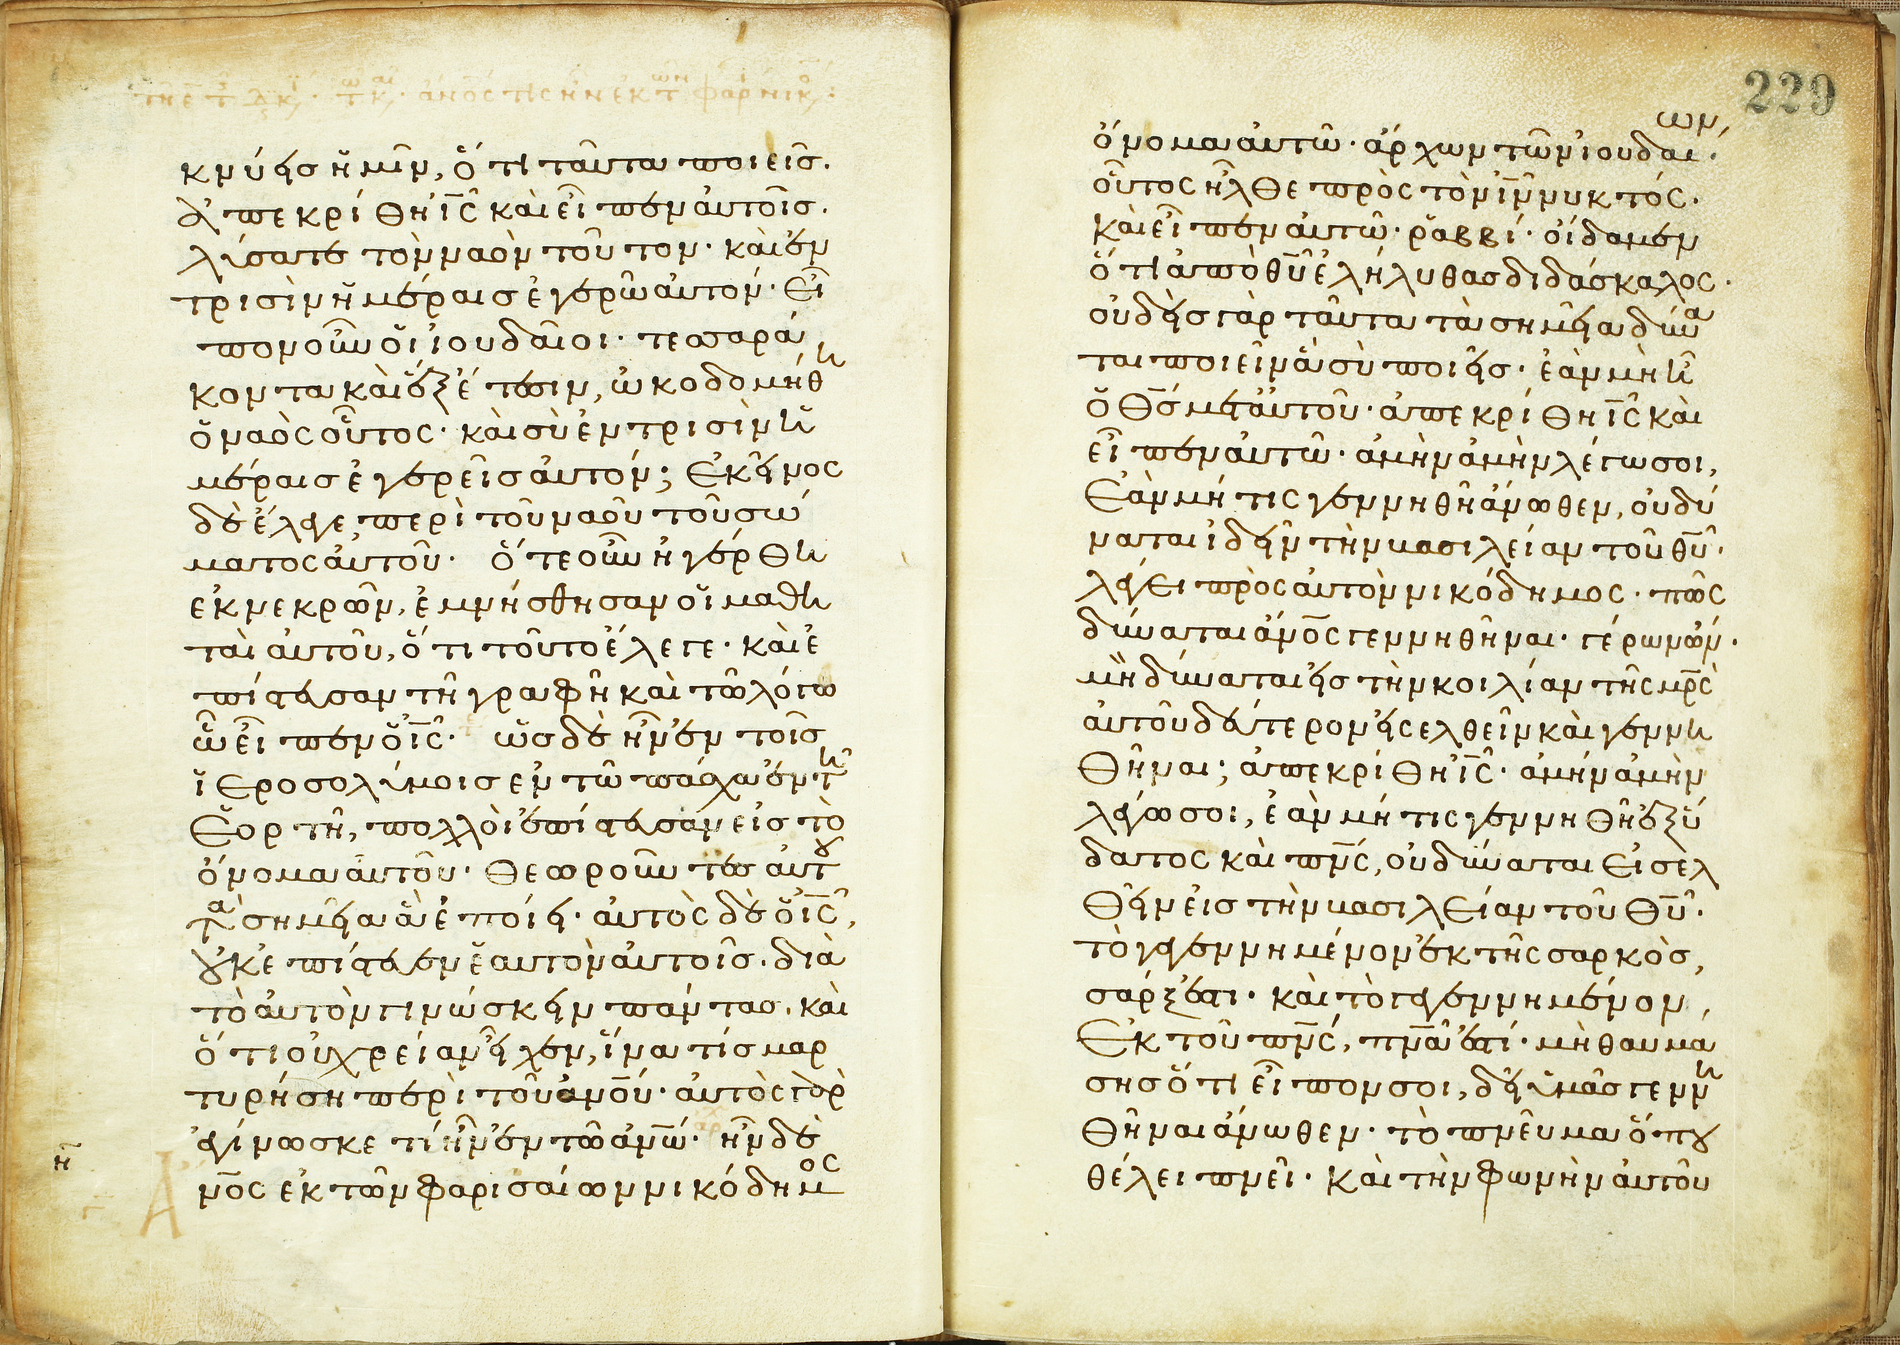 κνύεις ἡμῖν, ὅτι ταῦτα ποιεῖς.
ἀπεκρίθη ἰς καὶ εἶπεν αὐτοῖς.
λύσατε τὸν ναὸν τοῦτον· καὶ ἐν
τρισὶν ἡμέραις ἐγερῶ αὐτόν· Εἶ
πον οὖν οἱ ἰουδαῖοι· τεσσαρά
κοντα καὶ ἓξ ἔτεσιν, ὠκοδομήθη
ὁ ναὸς οὗτος· καὶ σὺ ἐν τρισὶν ἡ
μέραις ἐγερεῖς αὐτόν; Ἐκεῖνος
δὲ ἔλεγε περὶ τοῦ ναοῦ τοῦ σώ
ματος αὐτοῦ· ὅτε οὖν ἠγέρθη
ἐκ νεκρῶν, ἐμνήσθησαν οἱ μαθη
ταὶ αὐτοῦ, ὅτι τοῦτο ἔλεγε· καὶ ἐ
πίστευσαν τῆ γραφῆ καὶ τῶ λόγω
ὧ εἶπεν ὁ ἰς· ὡς δὲ ἦν ἐν τοῖς
ἱεροσολύμοις ἐν τῶ πάσχα ἐν τῆ
ἑορτῆ, πολλοὶ ἐπίστευσαν εἰς τὸ
ὄνομα αὐτοῦ· θεωροῦντες αὐτοῦ
τὰ σημεῖα ἃ ἐποίει· αὐτὸς δὲ ὁ ἰς,
οὐκ ἐπίστευεν ἑαυτὸν αὐτοῖς· διὰ
τὸ αὐτὸν γινώσκειν πάντας· καὶ
ὅτι οὐ χρείαν εἶχεν, ἵνα τίς μαρ
τυρήση περὶ τοῦ ανου· αὐτὸς γὰρ
ἐγίνωσκε τί ἦν ἐν τῶ ανω· ἦν δὲ
ανος ἐκ τῶν φαρισαίων νικόδημος
229
ὄνομα αὐτῶ· ἄρχων τῶν ἰουδαίων·
οὗτος ἦλθε πρὸς τὸν ιν νυκτός·
καὶ εἶπεν αὐτῶ· ῥαββί· οἴδαμεν
ὅτι ἀπὸ θυ ἐλήλυθας διδάσκαλος·
οὐδεὶς γὰρ ταῦτα τὰ σημεῖα δύνα
ται ποιεῖν ἃ σὺ ποιεῖς· ἐὰν μὴ ἦ
ὁ θς μετ' αὐτοῦ· ἀπεκρίθη ἰς καὶ
εἶπεν αὐτῶ· ἀμὴν ἀμὴν λέγω σοι,
Ἐὰν μή τις γεννηθῆ ἄνωθεν, οὐ δύ
ναται ἰδεῖν τὴν βασιλείαν τοῦ θυ·
λέγει πρὸς αὐτὸν νικόδημος· πῶς
δύναται ανος γεννηθῆναι· γέρων ὤν·
μὴ δύναται εἰς τὴν κοιλίαν τῆς μρς
αὐτοῦ δεύτερον εἰσελθεῖν καὶ γεννη
θῆναι; ἀπεκρίθη ἰς· ἀμὴν ἀμὴν
λέγω σοι, ἐὰν μή τις γεννηθῆ ἐξ ὕ
δατος καὶ πνς, οὐ δύναται εἰσελ
θεῖν εἰς τὴν βασιλείαν τοῦ θυ·
τὸ γεγεννημένον ἐκ τῆς σαρκὸς,
σάρξ ἐστι· καὶ τὸ γεγεννημένον,
Ἐκ τοῦ πνς, πνα ἐστί· μὴ θαυμά
σης ὅτι εἶπον σοι, δεῖ ὑμᾶς γενν
θῆναι ἄνωθεν· τὸ πνεῦμα ὅπου
θέλει πνεῖ· καὶ τὴν φωνὴν αὐτοῦ